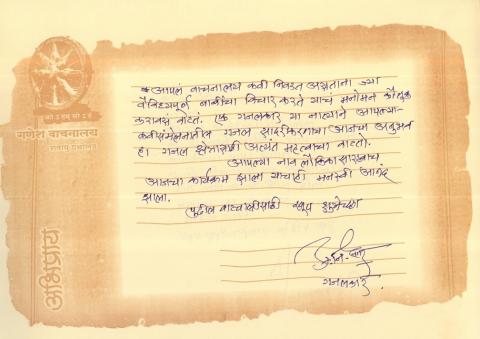 गणेश वाचनालय
अभिप्राय
आपलं वाचनालय कवी निवडत असताना ज्या
वैविध्यपूर्ण बाबींचा विचार करते याचं मनोमन कौतुक
करावसं वाटतं. एक गझलकार या नात्याने आपल्या
कवीसंमेलनातील गझल सादरीकरणाचा आजचा अनुभव
हा गझल क्षेत्रासाठी अत्यंत महत्वाचा वाटतो.
आपल्या नाव लौकिकासारखाच
आजचा कार्यक्रम झाला याचाही मनस्वी आनंद
झाला.
पुढील वाटचालीसाठी खूप शुभेच्छा
गझलकार.